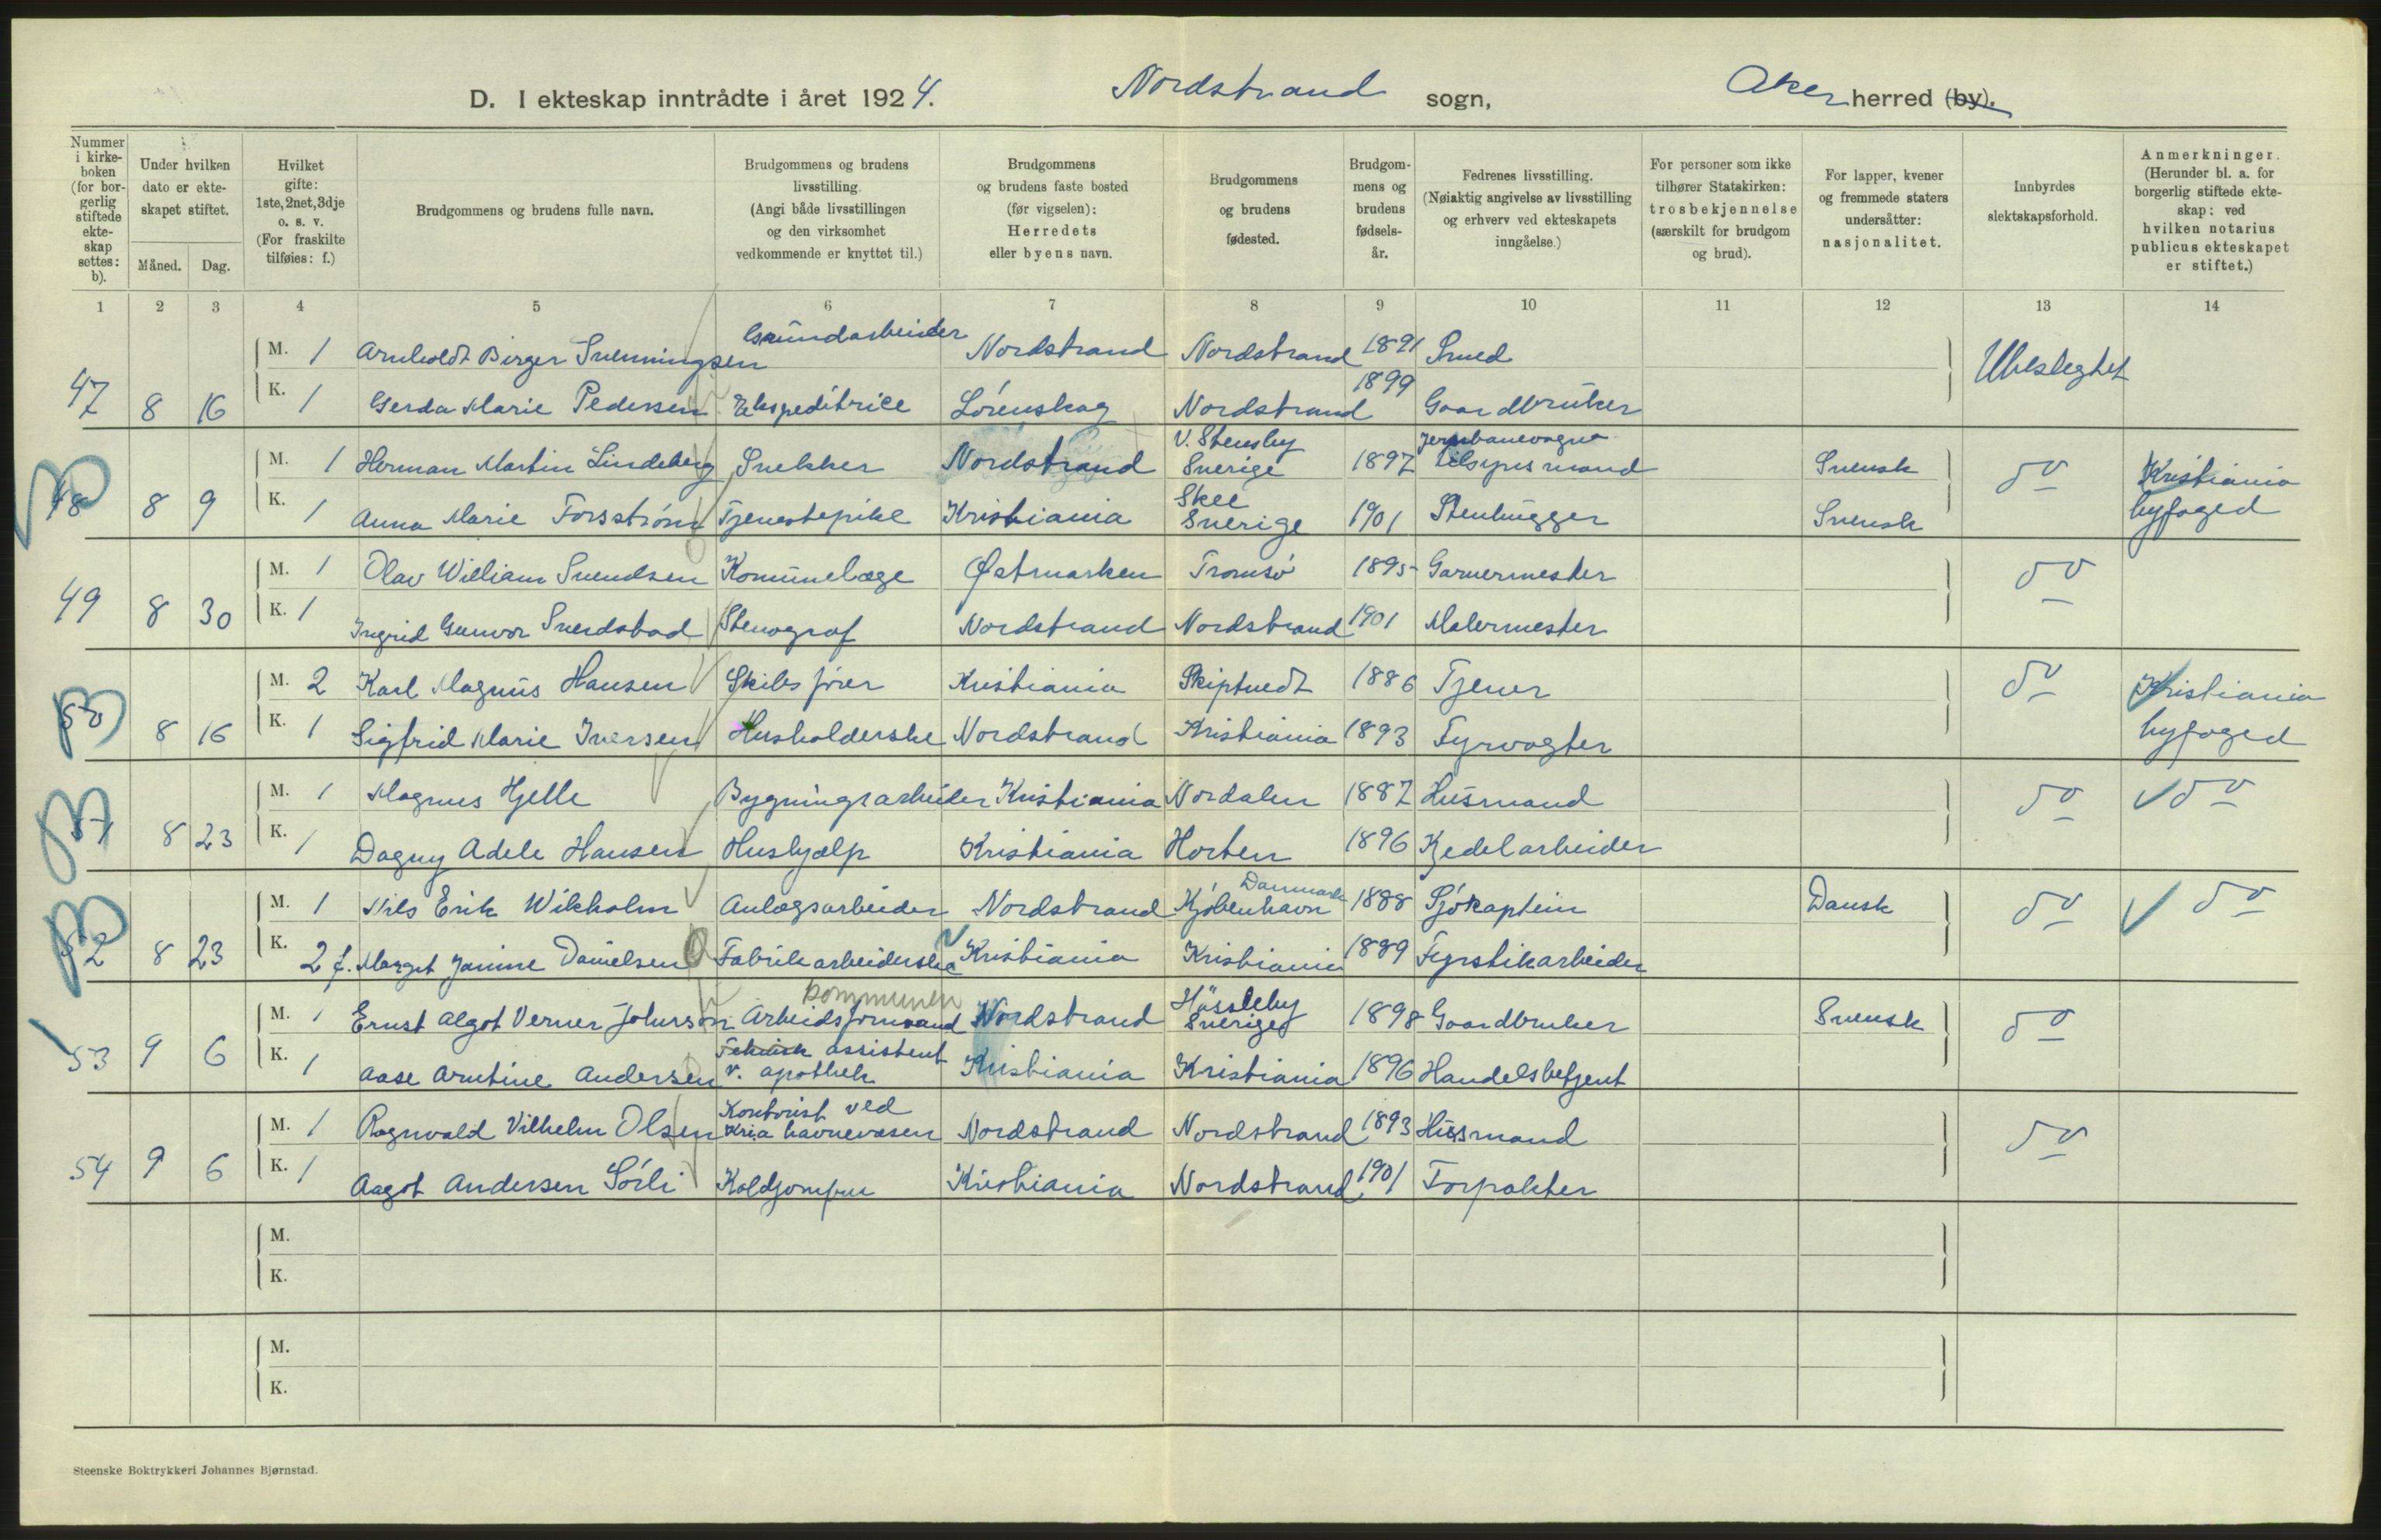 D. I ekteskap inntrådte i året 1924. Nordstrand sogn, Aker herred (by).
Nummer i kirke-boken (for bor-gerlig stiftede ekte-skap settes: b).
Under hvilken dato er ekte-skapet stiftet.
Måned. Dag.
Hvilket gifte: 1ste, 2net, 3dje o. s. v. (For fraskilte tilføies: f.)
Brudgommens og brudens fulle navn.
Brudgommens og brudens livsstilling. (Angi både livsstillingen og den virksomhet vedkommende er knyttet til.)
Brudgommens og brudens faste bosted (før vigselen): Herredets eller byens navn.
Brudgommens og brudens fødested.
Brudgom-mens og brudens fødsels-år.
Fedrenes livsstilling. (Nøiaktig angivelse av livsstilling og erhverv ved ekteskapets inngåelse.)
For personer som ikke tilhører Statskirken: trosbekjennelse (særskilt for brudgom og brud).
For lapper, kvener og fremmede staters undersåtter: nasjonalitet.
Innbyrdes slektskapsforhold.
Anmerkninger. (Herunder bl. a. for borgerlig stiftede ekte-skap: ved hvilken notarius publicus ekteskapet er stiftet.)
1 2 3 4 5 6 7 8 9 10 11 12 13 14
M. 1 Arnholdt Birger Svenningsen Grundarbeider Nordstrand Nordstrand 1891 Smed Ubeslegtet
47 8 16 K. 1 Gerda Marie Pedersen Ekspeditrice Lørenskog Nordstrand 1899 Gaardbruker
M. 1 Herman Martin Lindeberg Snekker Nordstrand V. Stensby Sverige 1897 Jernbanevogns tilsynsmand Svensk do Kristiania
48 8 9 K. 1 Anna Marie Forsstrøm Tjenestepike Kristiania Skee Sverige 1901 Stenhugger Svensk byfoged
M. 1 Olav William Svendsen Komunelæge Østmarken Tromsø 1895 Garvermester do
49 8 30 K. 1 Ingrid Gunvor Sverdstad Stenograf Nordstrand Nordstrand 1901 Malermester
M. 2 Karl Magnus Hansen Skibsfører Kristiania Skiptvedt 1886 Tjener do Kristiania
50 8 16 K. 1 Sigfrid Marie Iversen Husholderske Nordstrand Kristiania 1893 Fyrvogter byfoged
M. 1 Magnus Hjelle Bygningsarbeider Kristiania Nordalen 1887 Husmand do do
51 8 23 K. 1 Dagny Adele Hansen Hushjælp Kristiania Horten 1896 Kjedelarbeider
M. 1 Nils Erik Wikholm Anlægsarbeider Nordstrand Kjøbenhavn Danmark 1888 Sjøkaptein Dansk do do
52 8 23 K. 2 f. Margit Janine Danielsen Fabrikarbeiderske Kristiania Kristiania 1889 Fyrstikarbeider
M. 1 Ernst Algot Verner Johnsson Arbeidsformand kommunen Nordstrand Hässleby Sverige 1898 Gaardbruker Svensk do
53 9 6 K. 1 Aase Arntine Andersen Teknisk assistent v. apothek Kristiania Kristiania 1896 Handelsbetjent
M. 1 Ragnvald Vilhelm Olsen Kontorist ved Kria havnevæsen Nordstrand Nordstrand 1893 Husmand do
54 9 6 K. 1 Aagot Andersen Sørli Koldjomfru Kristiania Nordstrand 1901 Forpakter
M.
K.
M.
K.
Steenske Boktrykkeri Johannes Bjørnstad.